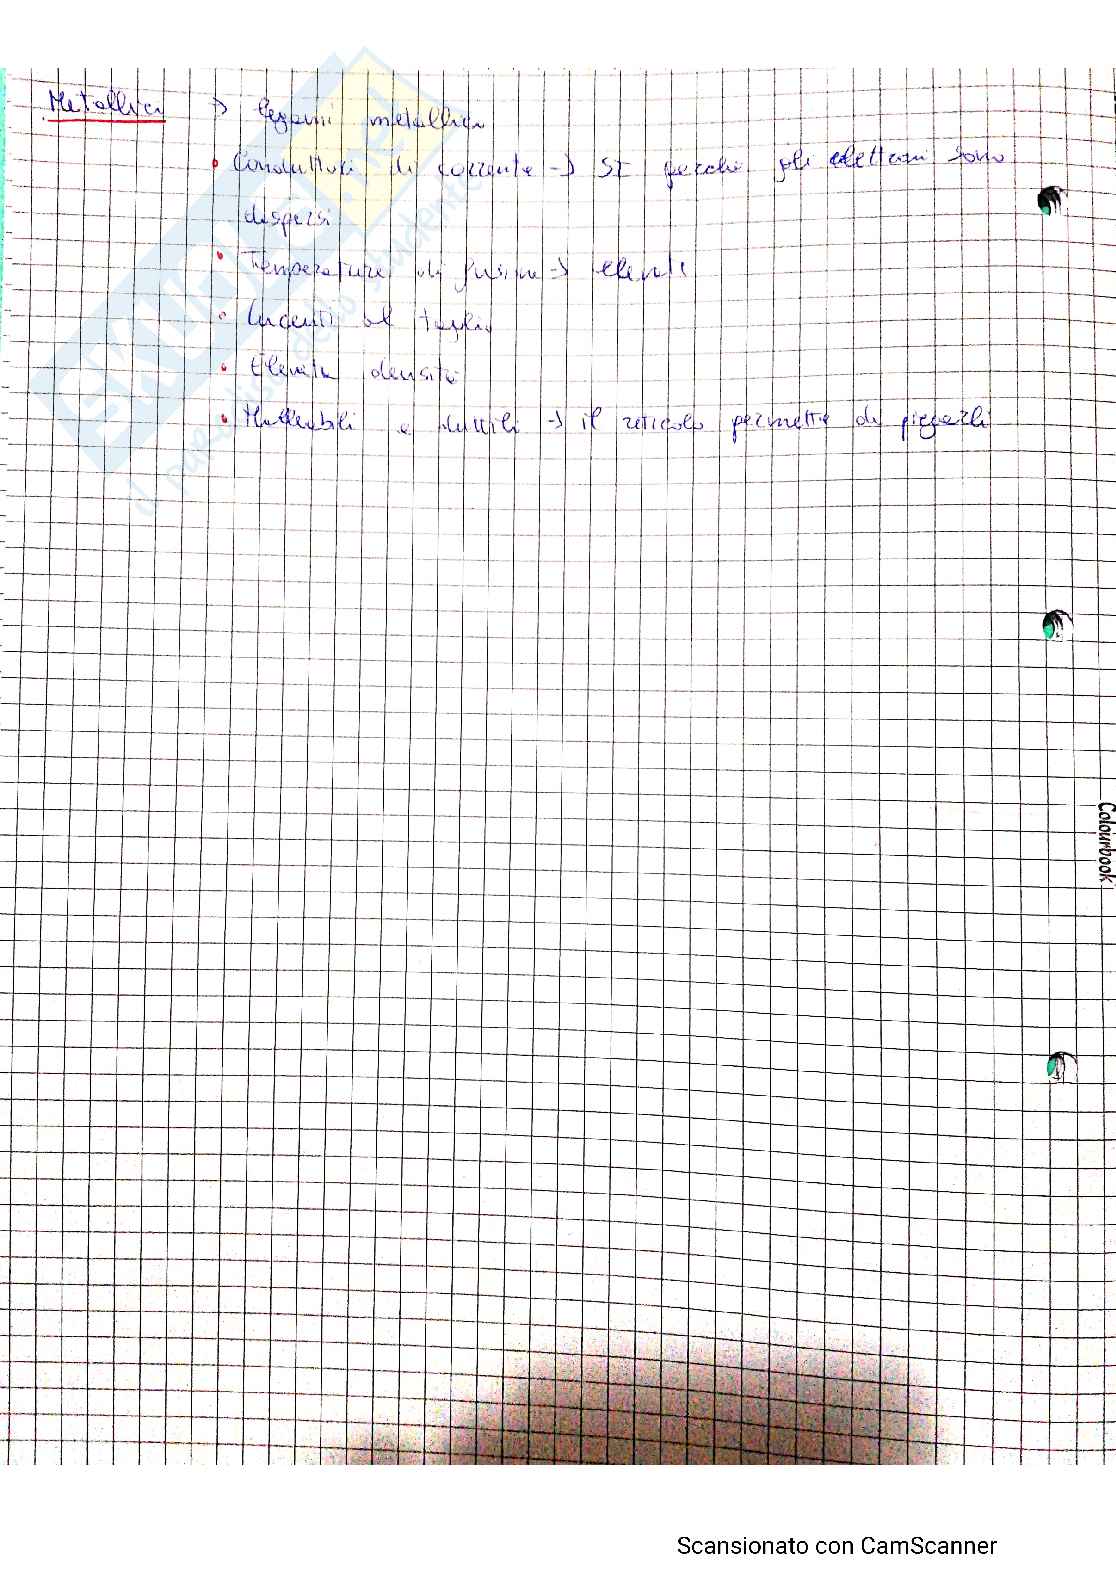 Metallici -> legami metallici
• Conduttori di corrente -> SI perchè gli elettroni sono
dispersi
• Temperature di fusione -> elevate
• Lucenti al taglio
• Elevata densità
• Malleabili e duttili -> il reticolo permette di piegarli
Colourbook
Scansionato con CamScanner